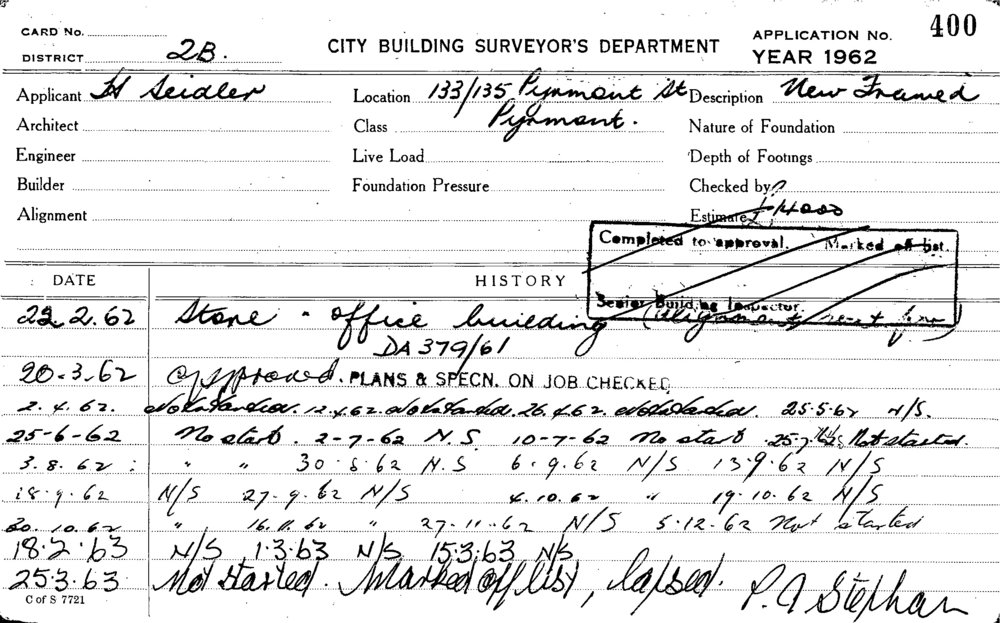 CARD No.
400
DISTRICT 2B.
CITY BUILDING SURVEYOR'S DEPARTMENT
APPLICATION No.
YEAR 1962
Applicant H Seidler
Location 133/135 Pyrmont St
Description New Framed
Architect
Class Pyrmont.
Nature of Foundation
Engineer
Live Load
Depth of Footings
Builder
Foundation Pressure
Checked by
Alignment
Estimate £14000
Completed to approval. Marked off list.
Senior Building Inspector.
DATE HISTORY
22.2.62 Store - office building
DA 379/61
20-3-62 approved. PLANS & SPECN. ON JOB CHECKED
2.4.62. Not started. 12.4.62. Not started. 26.4.62. Not started. 25-5-62 N/S.
25-6-62 No start. 2-7-62 N.S. 10-7-62 No start 25-7-62 Not started.
3.8.62: " " 30-8-62 N.S 6.9.62 N/S 13.9.62 N/S
18.9.62 N/S 27-9-62 N/S 4.10.62 " 19-10-62 N/S
30.10.62 " 16.11.62 " 27-11-62 N/S 5-12-62 Not started
18.2.63 N/S 1.3.63 N/S 15.3.63 N/S
25.3.63 Not started. Marked off list, lapsed. P. A Stephan
C of S 7721